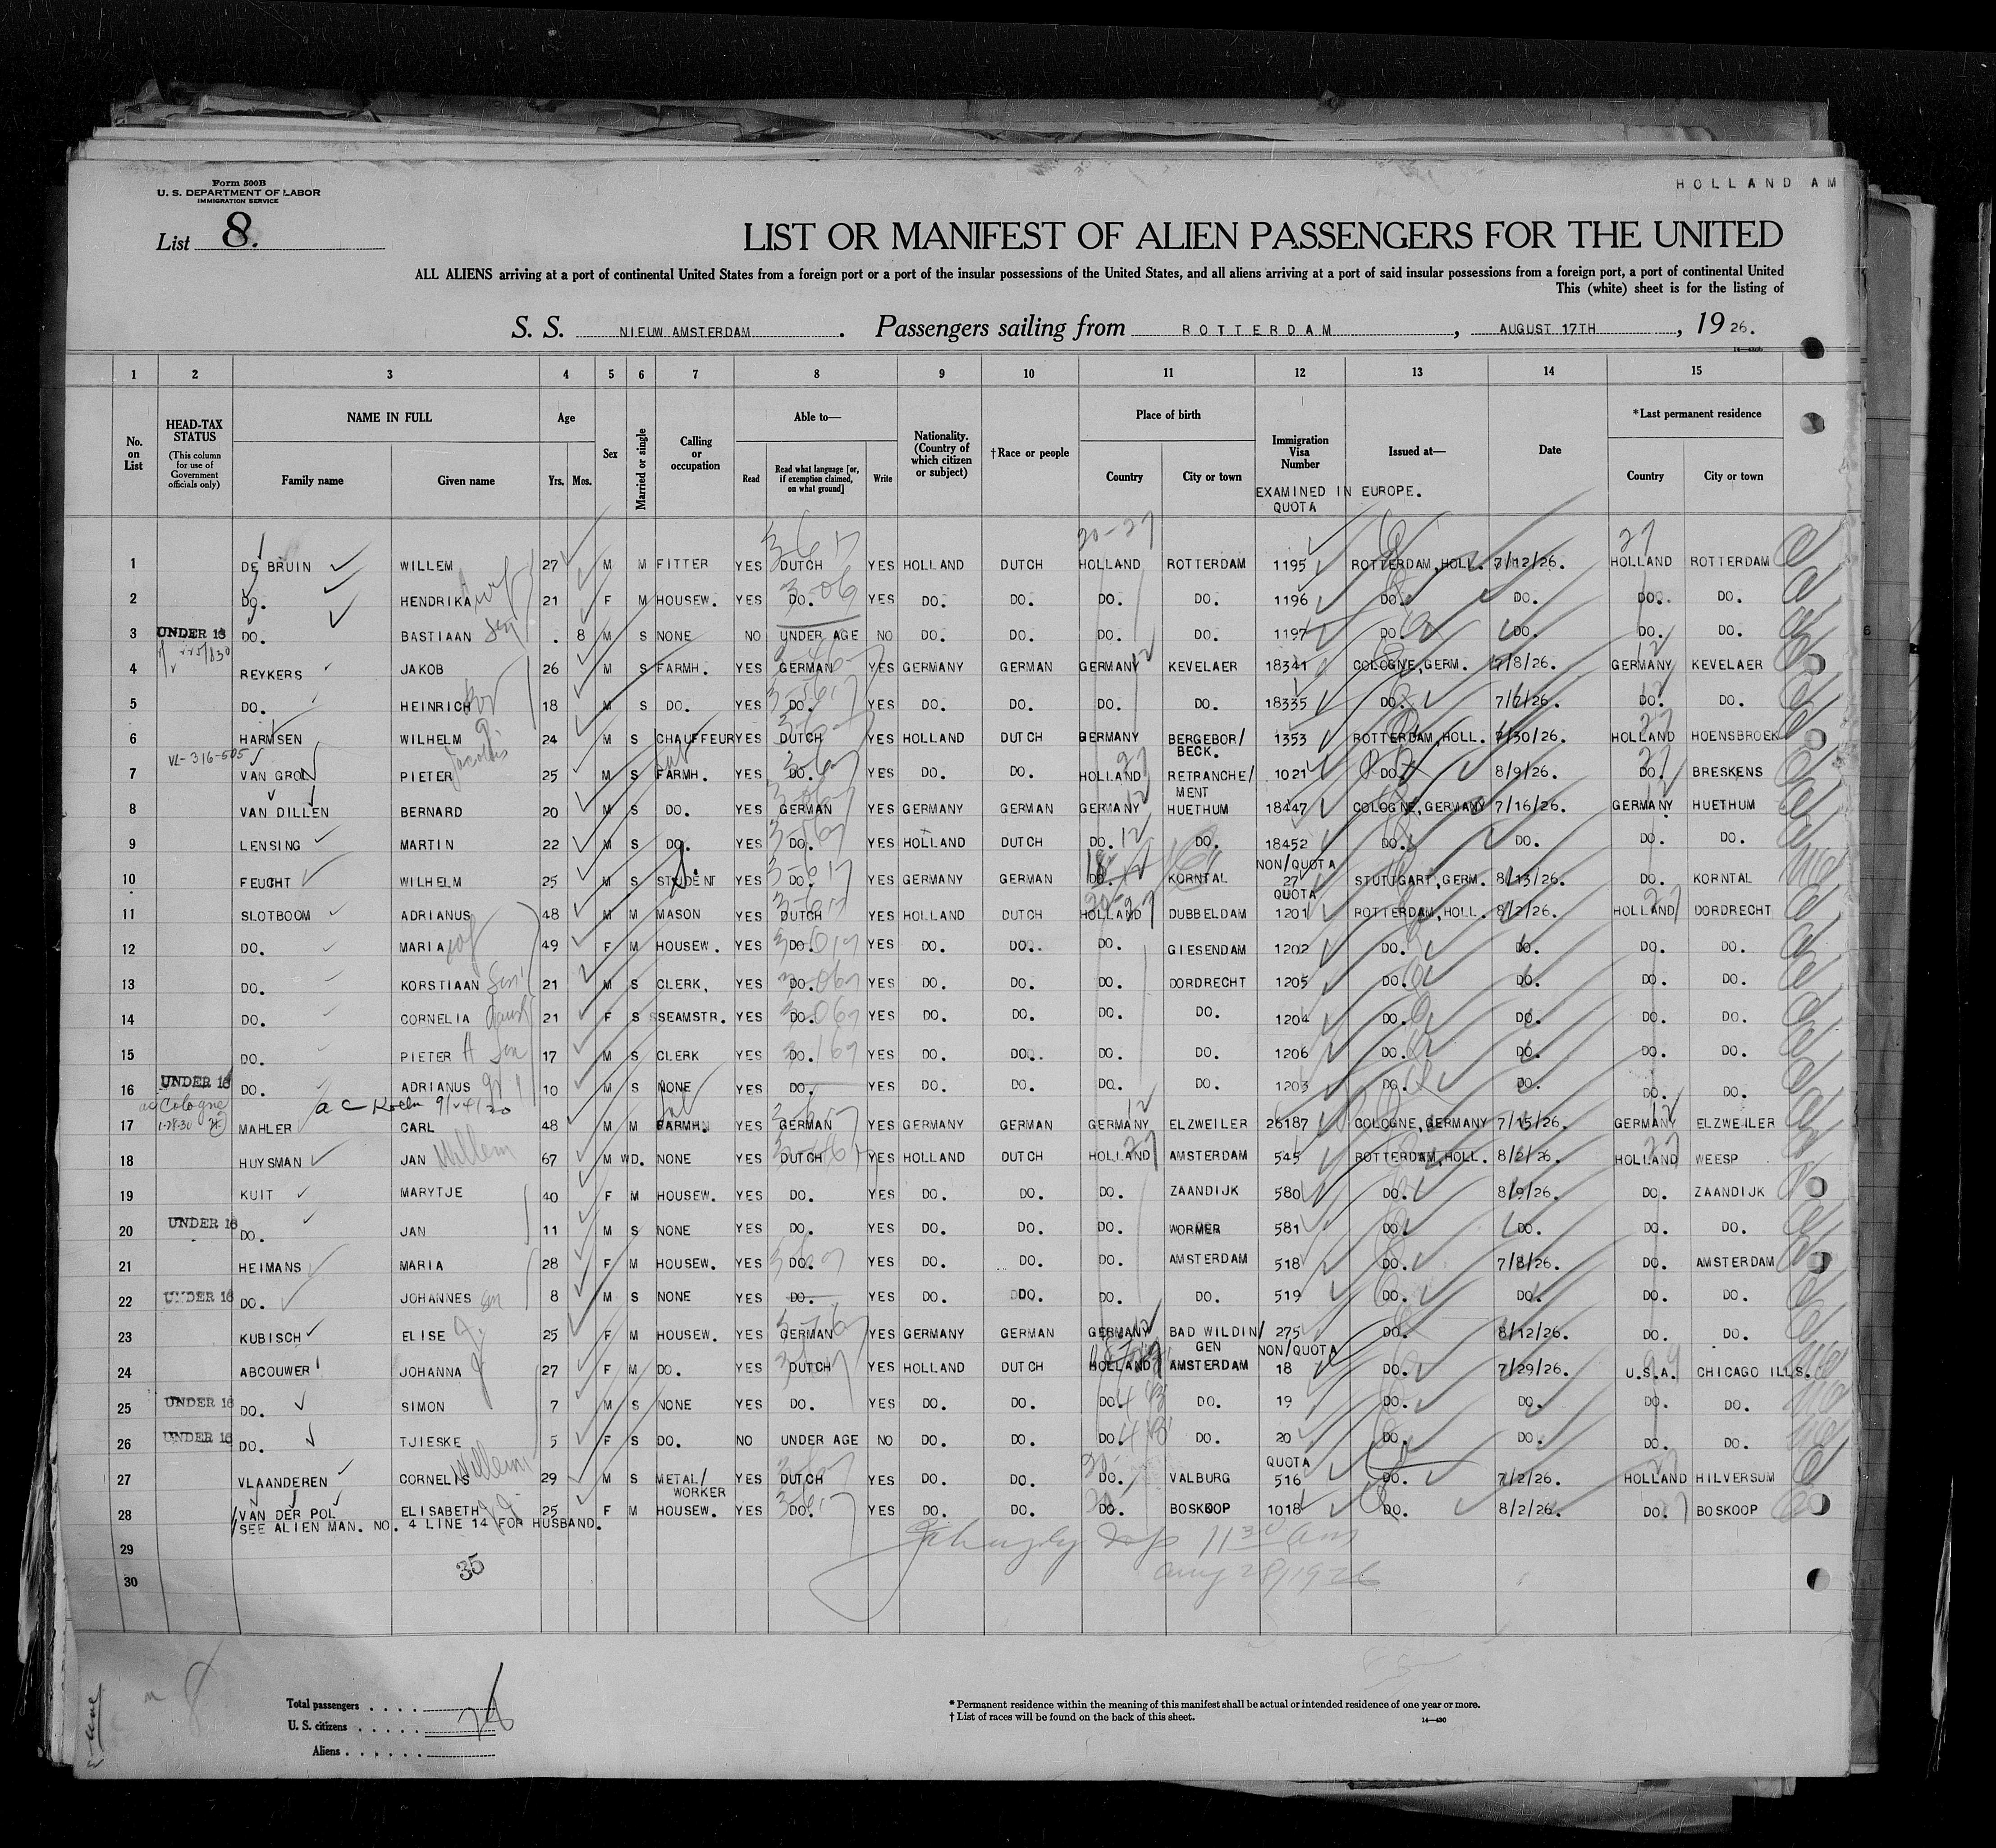 HOLLAND AM
Form 500B
U. S. DEPARTMENT OF LABOR
IMMIGRATION SERVICE
List 8.
LIST OR MANIFEST OF ALIEN PASSENGERS FOR THE UNITED
ALL ALIENS arriving at a port of continental United States from a foreign port or a port of the insular possessions of the United States, and all aliens arriving at a port of said insular possessions from a foreign port, a port of continental United
This (white) sheet is for the listing of
S. S. NIEUW AMSTERDAM. Passengers sailing from ROTTERDAM, AUGUST 17TH, 1926.
1 2 3 4 5 6 7 8 9 10 11 12 13 14 15
No. on List
HEAD-TAX STATUS (This column for use of Government officials only)
NAME IN FULL Family name Given name
Age Yrs. Mos.
Sex
Married or single
Calling or occupation
Able to— Read Read what language [or, if exemption claimed, on what ground] Write
Nationality. (Country of which citizen or subject)
†Race or people
Place of birth Country City or town
Immigration Visa Number
Issued at—
Date
*Last permanent residence Country City or town
EXAMINED IN EUROPE.
QUOTA
20-27 27
1 DE BRUIN WILLEM 27 M M FITTER YES DUTCH YES HOLLAND DUTCH HOLLAND ROTTERDAM 1195 ROTTERDAM, HOLL. 7/12/26. HOLLAND ROTTERDAM
2 DO. HENDRIKA wf 21 F M HOUSEW. YES DO. YES DO. DO. DO. DO. 1196 DO. DO. DO. DO.
3 UNDER 16 DO. BASTIAAN Son . 8 M S NONE NO UNDER AGE NO DO. DO. DO. DO. 1197 DO. DO. DO. DO.
4 REYKERS JAKOB 26 M S FARMH. YES GERMAN YES GERMANY GERMAN GERMANY KEVELAER 18341 COLOGNE, GERM. 7/8/26. GERMANY KEVELAER
5 DO. HEINRICH 18 M S DO. YES DO. YES DO. DO. DO. DO. 18335 DO. 7/7/26. DO. DO.
6 HARMSEN WILHELM 24 M S CHAUFFEUR YES DUTCH YES HOLLAND DUTCH GERMANY BERGEBOR/BECK. 1353 ROTTERDAM, HOLL. 7/30/26. HOLLAND HOENSBROEK
VL-316-505
7 VAN GROL PIETER Jacobus 25 M S FARMH. YES DO. YES DO. DO. HOLLAND RETRANCHE/MENT 1021 DO. 8/9/26. DO. BRESKENS
8 VAN DILLEN BERNARD 20 M S DO. YES GERMAN YES GERMANY GERMAN GERMANY HUETHUM 18447 COLOGNE, GERMANY 7/16/26. GERMANY HUETHUM
9 LENSING MARTIN 22 M S DO. YES DO. YES HOLLAND DUTCH DO. 12 DO. 18452 DO. DO. DO. DO.
NON/QUOTA
10 FEUCHT WILHELM 25 M S STUDENT YES DO. YES GERMANY GERMAN DO. KORNTAL 27 STUTTGART, GERM. 8/13/26. DO. KORNTAL
QUOTA
11 SLOTBOOM ADRIANUS 48 M M MASON YES DUTCH YES HOLLAND DUTCH HOLLAND DUBBELDAM 1201 ROTTERDAM, HOLL. 8/2/26. HOLLAND DORDRECHT
12 DO. MARIA wf 49 F M HOUSEW. YES DO. YES DO. DO. DO. GIESENDAM 1202 DO. DO. DO. DO.
13 DO. KORSTIAAN Son 21 M S CLERK, YES DO. YES DO. DO. DO. DORDRECHT 1205 DO. DO. DO. DO.
14 DO. CORNELIA 21 F S SEAMSTR. YES DO. YES DO. DO. DO. DO. 1204 DO. DO. DO. DO.
15 DO. PIETER A Son 17 M S CLERK YES DO. YES DO. DO. DO. DO. 1206 DO. DO. DO. DO.
16 UNDER 16 DO. ADRIANUS 10 M S NONE YES DO. YES DO. DO. DO. DO. 1203 DO. DO. DO. DO.
Cologne
1-28-30
17 MAHLER CARL 48 M M FARMH. YES GERMAN YES GERMANY GERMAN GERMANY ELZWEILER 26187 COLOGNE, GERMANY 7/15/26. GERMANY ELZWEILER
18 HUYSMAN JAN Willem 67 M WD. NONE YES DUTCH YES HOLLAND DUTCH HOLLAND AMSTERDAM 545 ROTTERDAM, HOLL. 8/2/26. HOLLAND WEESP
19 KUIT MARYTJE 40 F M HOUSEW. YES DO. YES DO. DO. DO. ZAANDIJK 580 DO. 8/9/26. DO. ZAANDIJK
20 UNDER 16 DO. JAN 11 M S NONE YES DO. YES DO. DO. DO. WORMER 581 DO. DO. DO. DO.
21 HEIMANS MARIA 28 F M HOUSEW. YES DO. YES DO. DO. DO. AMSTERDAM 518 DO. 7/8/26. DO. AMSTERDAM
22 UNDER 16 DO. JOHANNES Son 8 M S NONE YES DO. YES DO. DO. DO. DO. 519 DO. DO. DO. DO.
23 KUBISCH ELISE 25 F M HOUSEW. YES GERMAN YES GERMANY GERMAN GERMANY BAD WILDIN/GEN 275 DO. 8/12/26. DO. DO.
NON/QUOTA
24 ABCOUWER JOHANNA 27 F M DO. YES DUTCH YES HOLLAND DUTCH HOLLAND AMSTERDAM 18 DO. 7/29/26. U.S.A. CHICAGO ILLS.
25 UNDER 16 DO. SIMON 7 M S NONE YES DO. YES DO. DO. DO. DO. 19 DO. DO. DO. DO.
26 UNDER 16 DO. TJIESKE 5 F S DO. NO UNDER AGE NO DO. DO. DO. DO. 20 DO. DO. DO. DO.
QUOTA
27 VLAANDEREN CORNELIS Willem 29 M S METAL/WORKER YES DUTCH YES DO. DO. DO. VALBURG 516 DO. 7/2/26. HOLLAND HILVERSUM
28 VAN DER POL ELISABETH 25 F M HOUSEW. YES DO. YES DO. DO. DO. BOSKOOP 1018 DO. 8/2/26. DO. BOSKOOP
/SEE ALIEN MAN. NO. 4 LINE 14 FOR HUSBAND.
29 11 30 am
30 35 Aug 28/1926
Total passengers
U. S. citizens
Aliens
* Permanent residence within the meaning of this manifest shall be actual or intended residence of one year or more.
† List of races will be found on the back of this sheet.
14—430